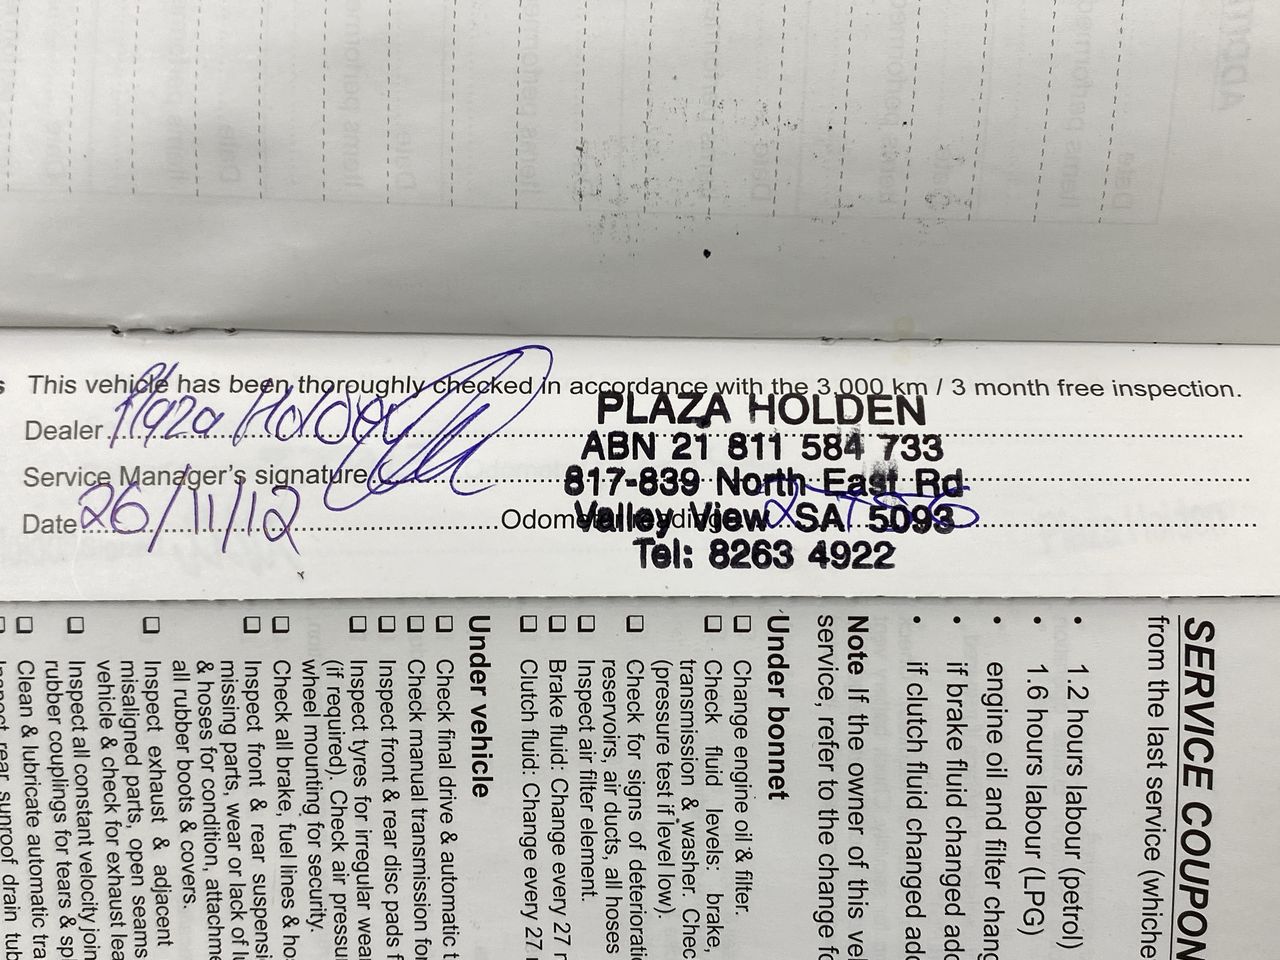 This vehicle has been thoroughly checked in accordance with the 3,000 km / 3 month free inspection.
Dealer Plaza Holden
Service Manager's signature
Date 26/11/12
PLAZA HOLDEN
ABN 21 811 584 733
817-839 North East Rd
Valley View SA 5093
Tel: 8263 4922
SERVICE COUPON
from the last service
• 1.2 hours labour (petrol)
• 1.6 hours labour (LPG)
• engine oil and filter
• if brake fluid changed
• if clutch fluid changed
Note If the owner of this
service, refer to the change
Under bonnet
☐ Change engine oil & filter.
☐ Check fluid levels: brake,
transmission & washer.
(pressure test if level low).
☐ Check for signs of
reservoirs, air ducts, all hoses
☐ Inspect air filter element.
☐ Brake fluid: Change every 27
☐ Clutch fluid: Change every 27
Under vehicle
☐ Check final drive & automatic
☐ Check manual transmission
☐ Inspect front & rear disc pads
☐ Inspect tyres for irregular
(if required). Check air
wheel mounting for security.
☐ Check all brake, fuel lines &
☐ Inspect front & rear
missing parts, wear or lack of
& hoses for condition,
all rubber boots & covers.
☐ Inspect exhaust & adjacent
misaligned parts, open seams
vehicle & check for exhaust
☐ Inspect all constant velocity
rubber couplings for tears &
☐ Clean & lubricate automatic
rear sunroof drain